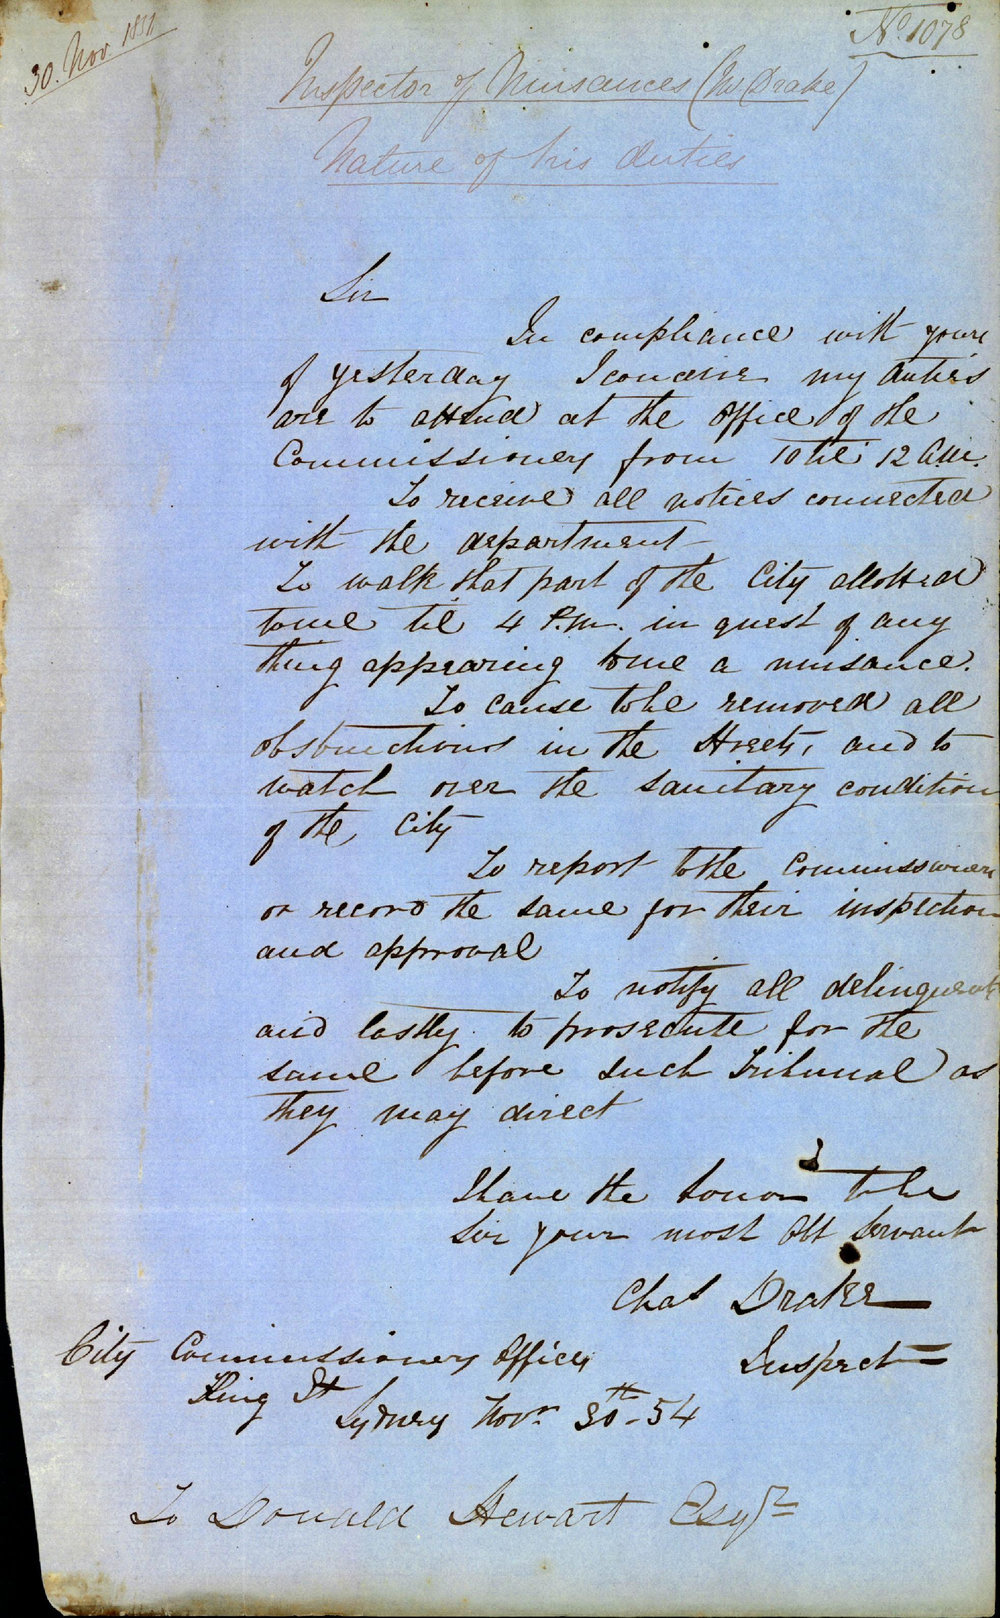 30. Nov. 1854
No. 1078
Inspector of Nuisances (Mr Drake)
Nature of his duties
Sir
In compliance with yours
of yesterday I concieve my duties
are to attend at the Office of the
Commissioners from 10 til 12 A.M.
To receive all notices connected
with the department
To walk that part of the City allotted
to me til 4 P.M. in quest of any
thing appearing to me a nuisance.
To cause to be removed all
obstructions in the Streets, and to
watch over the sanitary condition
of the City
To report to the Commissioners
or record the same for their inspection
and approval
To notify all delinquents
and lastly to prosecute for the
same before such Tribunal as
they may direct
I have the honor to be
Sir your most Obt Servant
Chas Drake
Inspect
City Commissioners Office
King St
Sydney Novr. 30th - 54
To Donald Stewart Esqr